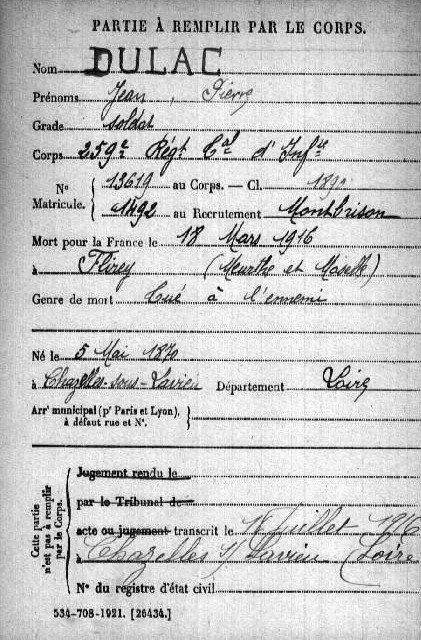 PARTIE À REMPLIR PAR LE CORPS.
Nom DULAC
Prénoms Jean, Pierre
Grade soldat
Corps 259e Régt Cal d'Infie
No 13619 au Corps. — Cl. 1890
Matricule. 1492 au Recrutement Montbrison
Mort pour la France le 18 Mars 1916
à Flirey (Meurthe et Moselle)
Genre de mort Tué à l'ennemi
Né le 5 Mai 1870
à Chazelles-sous-Lavieu Département Loire
Arrt municipal (pr Paris et Lyon),
à défaut rue et No.
Cette partie
n'est pas à remplir
par le Corps.
Jugement rendu le
par le Tribunal de
acte ou jugement transcrit le 18 Juillet 1916
à Chazelles s/ Lavieu (Loire
No du registre d'état civil
534-708-1921. [26434.]